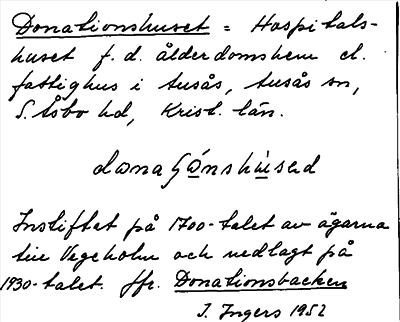 Donationshuset = Hospitals-
huset f.d. ålderdomshem el.
fattighus i Ausås, Ausås sn,
S. Åsbo hd, Krist. län.
Instiftat på 1700-talet av ägarna
till Vegeholm och nedlagt på
1930-talet. Jfr. Donationsbacken
I. Ingers 1952